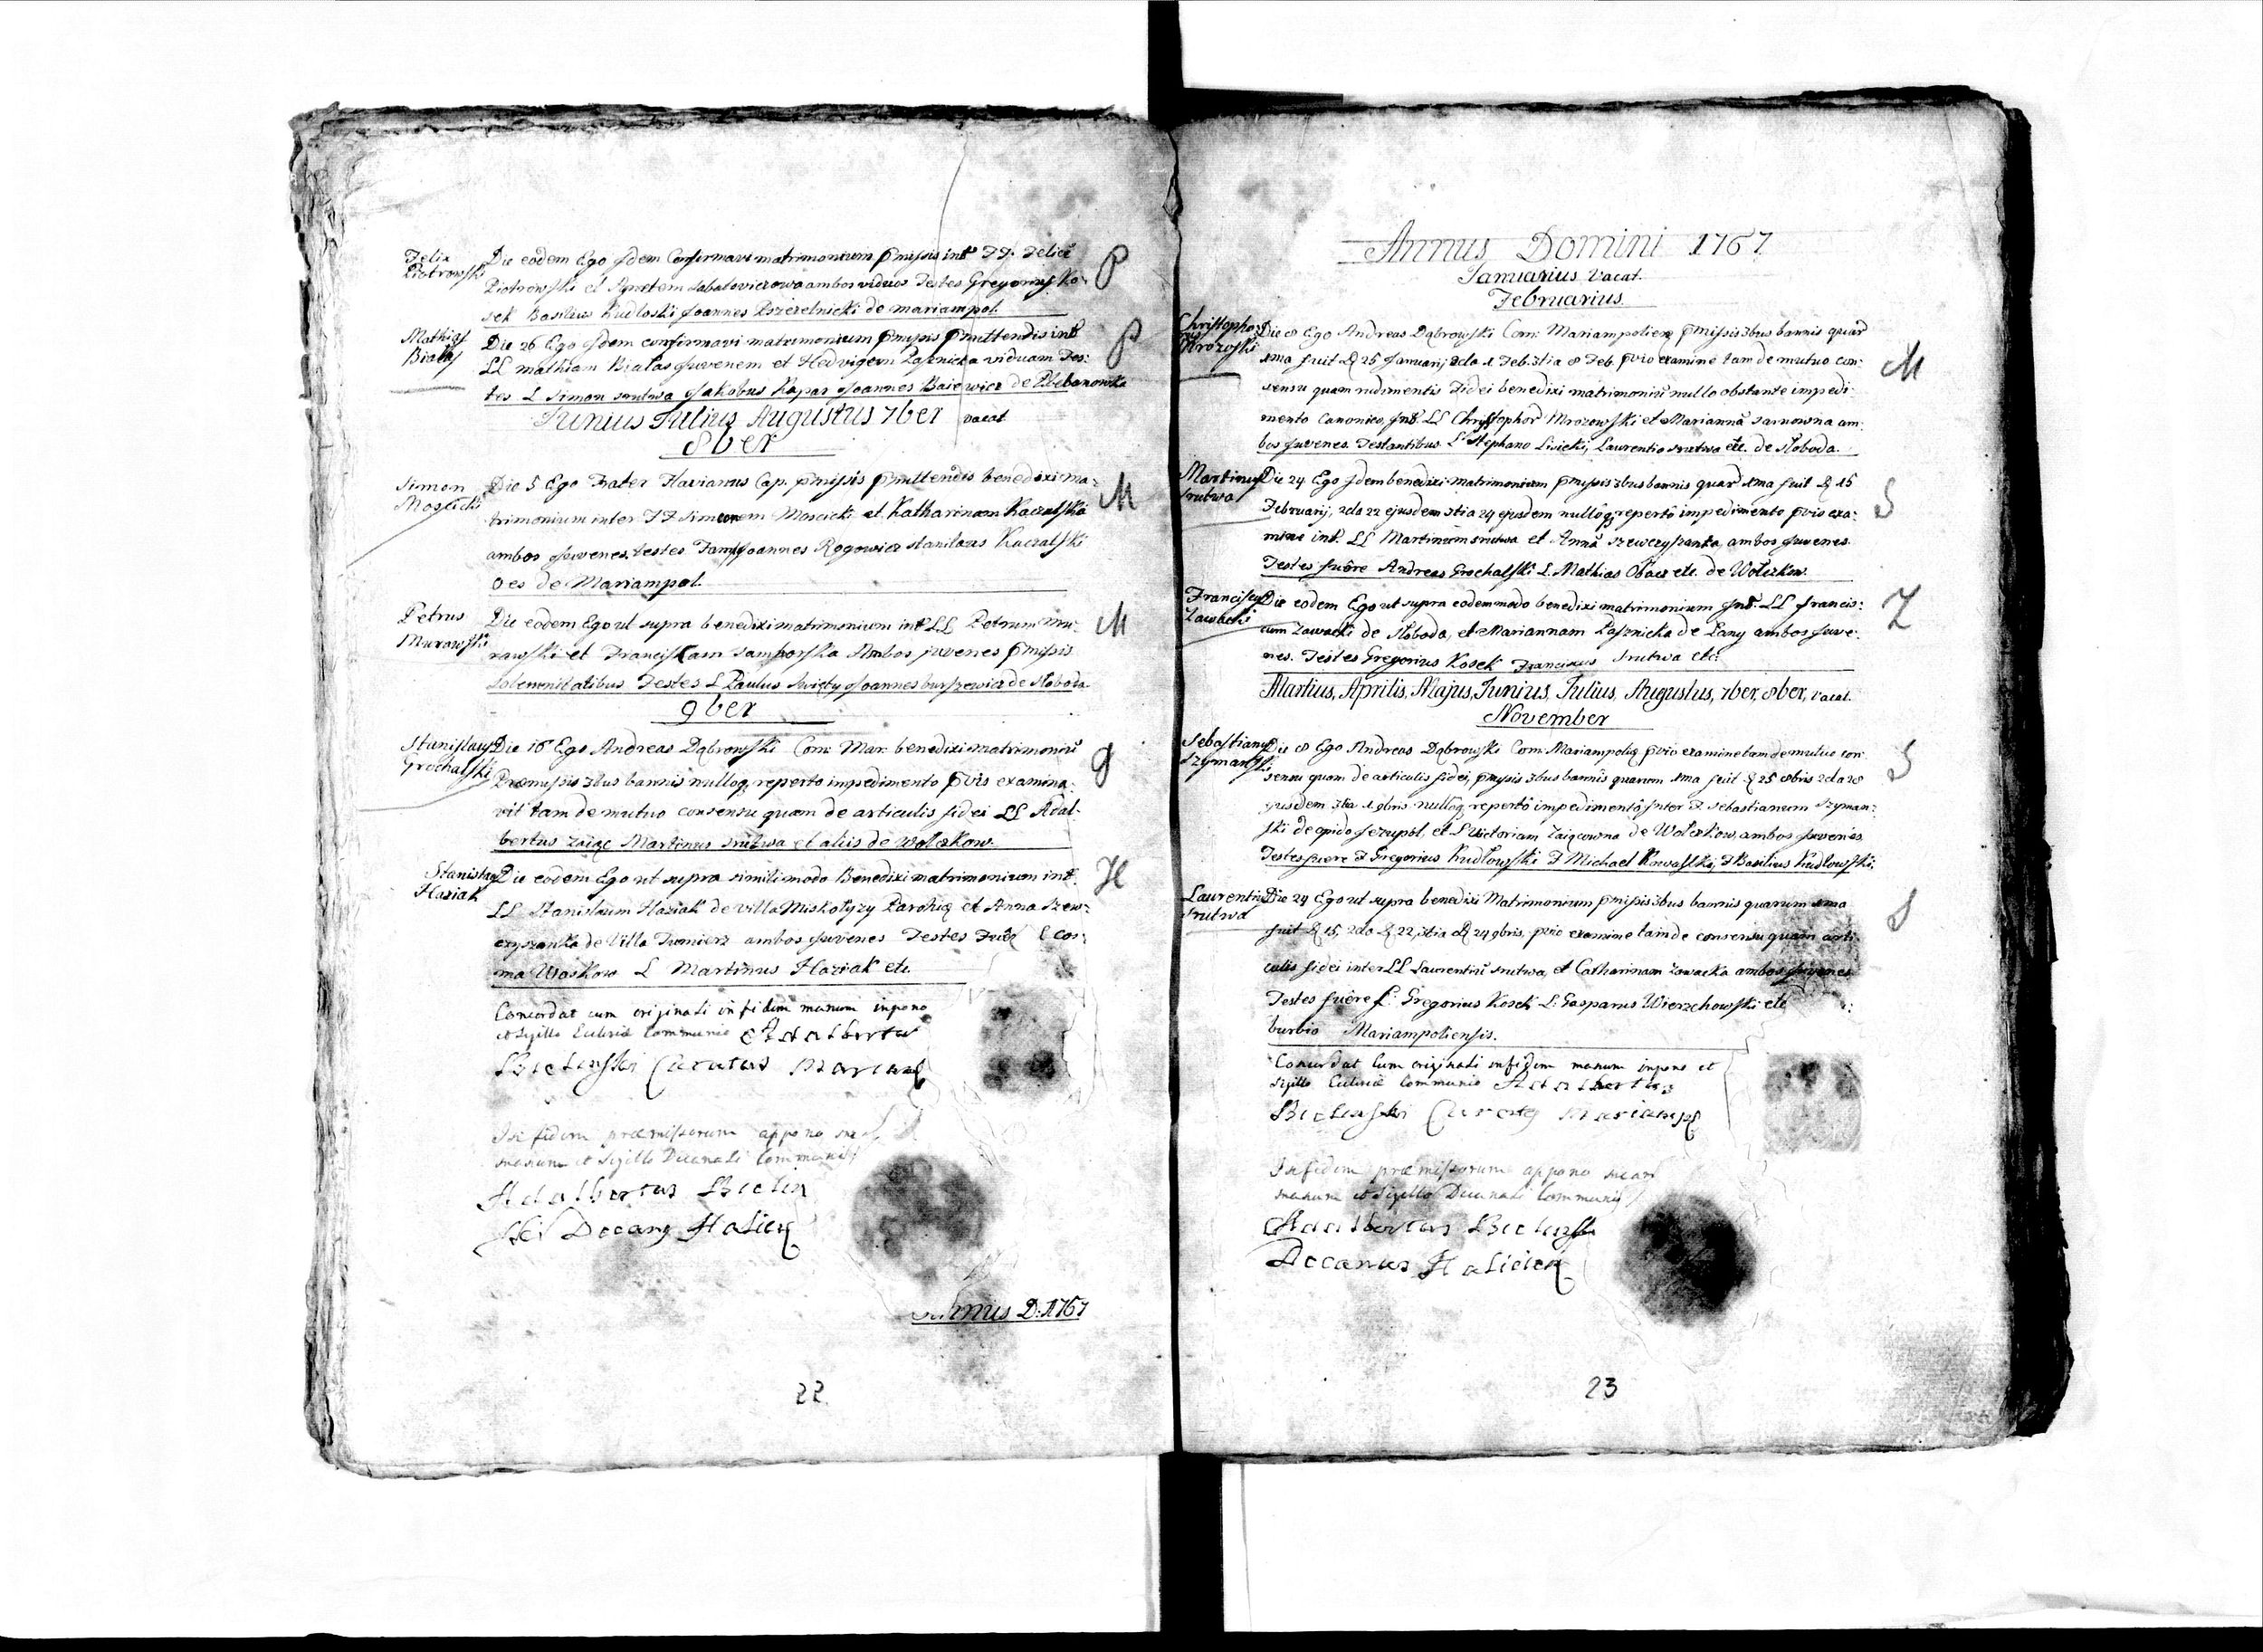 Felix
Piotrowski
Die eodem Ego Idem Confirmavi matrimonium pmissis int FF. Felicē
Piotrowski et Agnetem Sabatoviczowa ambos viduos Testes Gregorius Ko-
sek Basilius Kudloski Joannes Pszczelnicki de mariampol.
P
Mathias
Białas
Die 26 Ego Idem confirmavi matrimonium pmissis pmittendis int
LL mathiam Białas Juvenem et Hedvigem Łaznicka viduam Tes:
tes L Simon Srutwa Jakobus Kapar Joannes Baiewicz de Plebanowka
P
Junius Julius Augustus 7ber vacat
8ber
Simon
Moscicki
Die 5 Ego Frater Flavianus Cap. pmissis pmittendis benedixi ma:
trimonium inter FF Simeonem Moscicki et Katharinam Kaczalska
ambos Juvenes. testes Fam Joannes Rogowicz Stanilaus Kaczalski
oes de Mariampol.
M
Petrus
Murawski
Die eodem Ego ut supra benedixi matrimonium int LL Petrum Mu:
rawski et Franciskam Samborska Ambos juvenes pmissis
Solemnitatibus Testes L Paulus Swięty Joannes burszewicz de Słoboda
M
9ber
Stanislaus
Grochalski
Die 16 Ego Andreas Dąbrowski Com: Mar: benedixi matrimoniū
Præmissis 3bus bannis nulloq reperto impedimento pvis examina-
vit tam de mutuo consensu quam de articulis fidei LL Adal-
bertus Zaiąc Martinus Srutwa et aliis de Wołczkow.
g
Stanislaus
Haziak
Die eodem Ego ut supra simili modo Benedixi matrimonium int.
LL Stanislaum Haziak de villa Miskotyzy Parohiæ et Anna Szew:
czyszanka de Villa Tumierz ambos Juvenes Testes L cos:
ma Waskow L Martinus Haziak etc.
H
Concordat cum originali in fidem manum impono
et Sigillo Ecclesiæ Communio Adalbertus
Bielinski Curatus Mariampol
In fidem præmissorum appono mea
manum et Sigillo Decanali Communis
Adalbertus Bielin
ski Decanus Halicien
D: 1767
22
Annus Domini 1767
Januarius Vacat.
Februarius.
Christophorus
Mrozoski
Die 8 Ego Andreas Dąbrowski Com: Mariampolien pmissis 3bus bannis quar
1ma fuit D 25 Januarij 2da 1 Feb. 3tia 8 Feb. pvio examine tam de mutuo con:
sensu quam rudimentis Fidei benedixi matrimoniū nullo obstante impedi
mento Canonico, Int. LL Christophor Mrozowski et Mariannā Sarnowna am:
bos Juvenes. Testantibus L Stephano Lisicki, Laurentio Srutwa etc. de Słoboda.
M
Martinus
Srutwa
Die 24 Ego Idem benedixi matrimonium pmissis 3bus bannis quar 1ma fuit D 15
Februarij, 2da 22 ejusdem 3tia 24 ejusdem nulloq reperto impedimento pvio exa:
mine int. LL Martinum Srutwa et Annā Szewczyszanka ambos Juvenes.
Testes fuere Andreas Grochalski L. Mathias Obacz etc. de Wołczkow.
S
Franciscus
Zawacki
Die eodem Ego ut supra eodem modo benedixi matrimonium Int. LL francis:
cum Zawacki de Słoboda, et Mariannam Łasznicka de Łany ambos Juve:
nes. Testes Gregorius Kosek Franciscus Srutwa etc.
Z
Martius, Aprilis, Majus, Junius, Julius, Augustus, 7ber, 8ber, vacat.
November
Sebastianus
Szymanski
Die 8 Ego Andreas Dąbrowski Com: Mariampoliæ pvio examine tam de mutuo con
sensu quam de articulis fidei, pmissis 3bus bannis quarum 1ma fuit D 25 8bris 2da 28
ejusdem 3tia 1 9bris nulloq reperto impedimento Inter F Sebastianum Szyman:
ski de opido Jezupol, et L Victoriam Zaiącowna de Wołczkow ambos Juvenes
Testes fuere F Gregorius Kudłowski F Michael Kowalski, F Basilius Kudłowski.
S
Laurentius
Srutwa
Die 24 Ego ut supra benedixi Matrimonium pmissis 3bus bannis quarum 1ma
fuit D 15, 2da D 22, 3tia D 24 9bris, pvio examine tam de consensu quam arti-
culis fidei inter LL Laurentiū Srutwa, et Catharinam Zawacka ambos Juvenes
Testes fuere L: Gregorius Kosek L: Gasparus Wierzchowski etc
burbio Mariampoliensis.
S
Concordat Cum originali in fidem manum impono et
Sigillo Ecclesiæ Communio Adalbertus
Bielinski Curatus Mariampol
In fidem præmissorum appono meam
manum et Sigillo Decanali Communis
Adalbertus Bielinski
Decanus Halicien
23